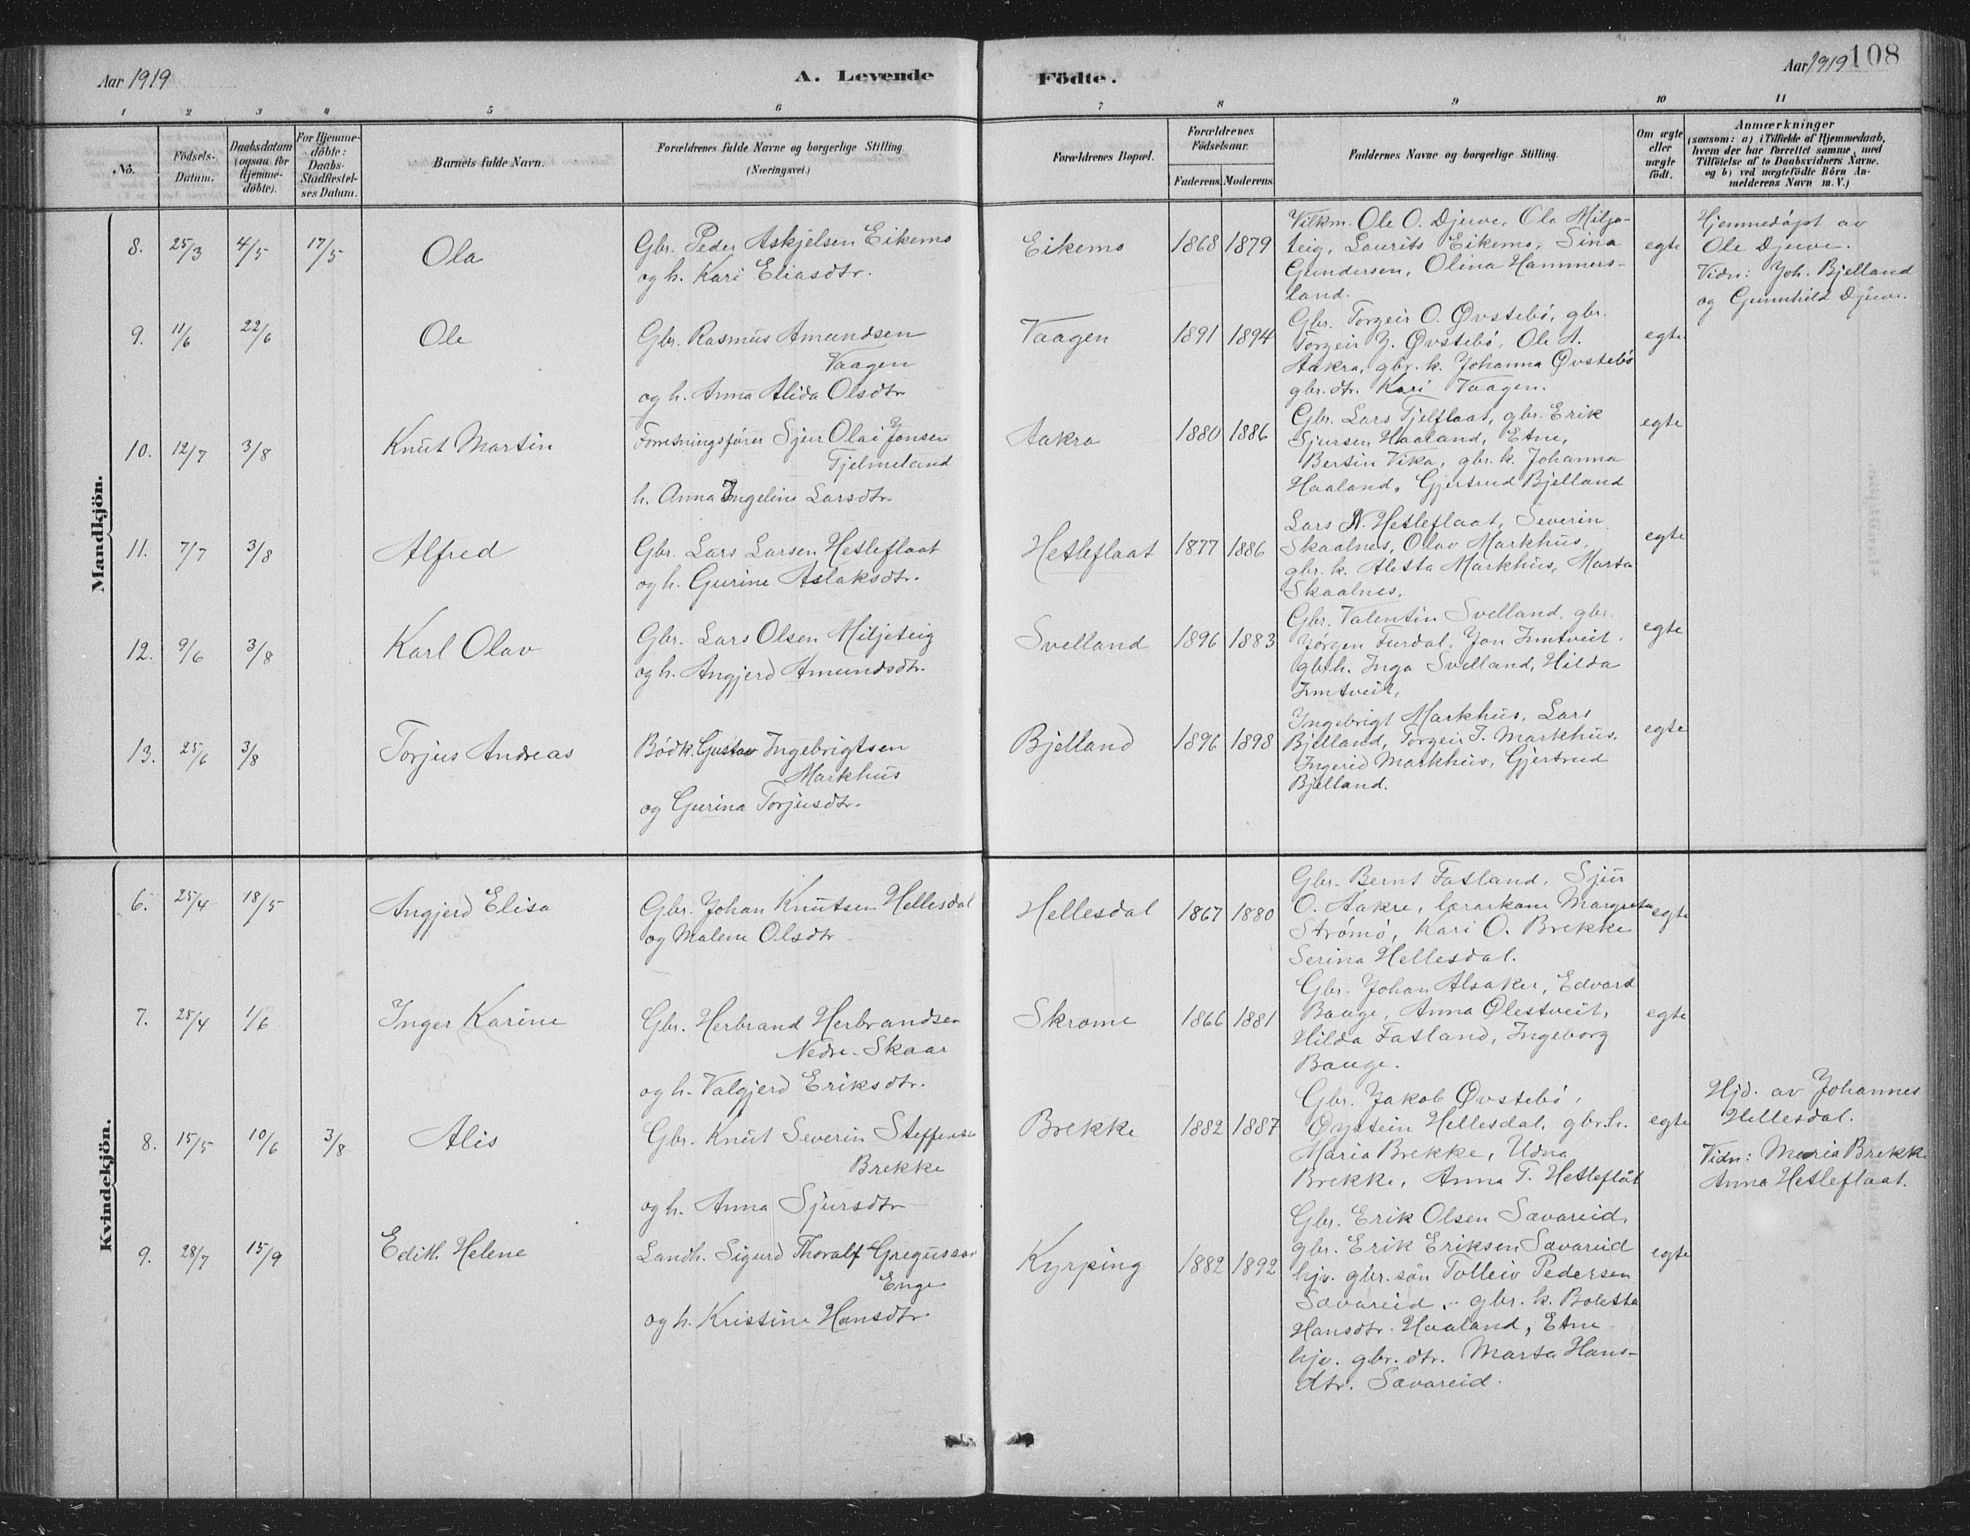 Aar 1919
A. Levende
Födte.
Aar 1919
108
1 2 3 4 5 6 7 8 9 10 11
No.
Födsels-
Datum.
Daabsdatum
(ogsaa for
Hjemme-
döbte).
For Hjemme-
döbte:
Daabs-
Stadfæstel-
ses Datum.
Barnets fulde Navn.
Forældrenes fulde Navne og borgerlige Stilling
(Næringsvei.)
Forældrenes Bopæl.
Forældrenes
Födselsaar.
Faderens. Moderens.
Faddernes Navne og borgerlige Stilling.
Om ægte
eller
uægte
födt.
Anmærkninger
(saasom: a) i Tilfælde af Hjemmedaab,
hvem der har forrettet samme, med
Tilföielse af to Daabsvidners Navne,
og b) ved uægtefödte Börn An-
melderens Navn m. V.)
Mandkjön.
8. 25/3 4/5 17/5 Ola
Gbr. Peder Askjelsen Eikemo
og h. Kari Eliasdtr.
Eikemo 1868 1879
Vilkm. Ole O. Djuve, Ola Milje-
teig, Laurits Eikemo, Sina
Gundersen, Olina Hammers-
land.
egte
Hjemmedøpt av
Ole Djuve.
Vidn: Joh. Bjelland
og Gunnhild Djuve.
9. 11/6 22/6 Ole
Gbr. Rasmus Amundsen
Vaagen
og h. Anna Alida Olsdtr
Vaagen 1891 1894
Gbr. Torgeir O. Øvstebø, gbr.
Torgeir J. Øvstebø, Ole A.
Aakra, gbr. k. Johanna Øvstebø
gbr. dtr. Kari Vaagen.
egte
10. 12/7 3/8 Knut Martin
Forretningsfører Sjur Olai Jonsen
Tjelmeland
h. Anna Ingeline Larsdtr.
Aakra 1880 1886
Gbr. Lars Tjelflaat, gbr. Erik
Sjursen Haaland, Etne,
Bertin Vika, gbr. k. Johanna
Haaland, Gjertrud Bjelland
egte
11. 7/7 3/8 Alfred
Gbr. Lars Larsen Hetleflaat
og h. Gurine Aslaksdtr.
Hetleflaat 1877 1886
Lars N. Hetleflaat, Severin
Skaalnes, Olav Markhus,
gbr. k. Aletta Markhus, Marta
Skaalnes.
egte
12. 9/6 3/8 Karl Olav
Gbr. Lars Olsen Miljeteig
og h. Angjerd Amundsdtr.
Svelland 1896 1883
Gbr. Valentin Svelland, gbr.
Jørgen Furdal, Jon Imtveit,
gbr.h. Inga Svelland, Hilda
Imtveit,
egte
13. 25/6 3/8 Torjus Andreas
Bødk. Gustav Ingebrigtsen
Markhus
og Gurina Torjusdtr.
Bjelland 1896 1898
Ingebrigt Markhus, Lars
Bjelland, Torgeir T. Markhus,
Ingerid Markhus, Gjertrud
Bjelland.
egte
Kvindekjön.
6. 25/4 18/5 Angjerd Elisa
Gbr. Johan Knutsen Hellesdal
og Malene Olsdtr
Hellesdal 1867 1880
Gbr. Bernt Fatland, Sjur
O. Aakre, lærarkone Margreta
Strømø, Kari O. Brekke
Serina Hellesdal.
egte
7. 25/4 1/6 Inger Karine
Gbr. Herbrand Herbrandsen
Nedre-Skaar
og h. Valgjerd Eriksdtr.
Skromme 1866 1881
Gbr. Johan Alsaker, Edvard
Bauge, Anna Ølestveit,
Hilda Fatland, Ingeborg
Bauge.
egte
8. 15/5 10/6 3/8 Alis
Gbr. Knut Severin Steffensen
Brekke
og h. Anna Sjursdtr
Brekke 1882 1887
Gbr. Jakob Øvstebø,
Øystein Hellesdal, gbr.h.
Maria Brekke, Udna
Brekke, Anna T. Hetleflåt
egte
Hjd. av Johannes
Hellesdal.
Vidn: Maria Brekke
Anna Hetleflaat.
9. 28/7 15/9 Edith Helene
Landh. Sigurd Thoralf Gregussen
Enge
og h. Kristine Hansdtr.
Kyrping 1882 1892
Gbr. Erik Olsen Savareid,
gbr. Erik Eriksen Savareid
hjv. gbr. søn Tolleiv Pedersen
Savareid, gbr. k. Boletta
Hansdtr. Haaland, Etne
hjv. gbr. dtr. Marta Hans-
dtr. Savareid.
egte